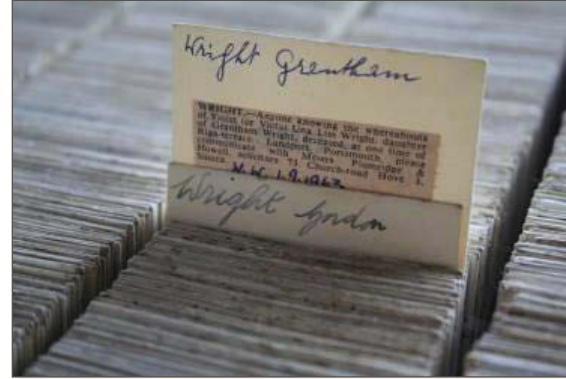 Wright Grentham
WRIGHT.—Anyone knowing the whereabouts
of Violet (or Viola) Una Lias Wright, daughter
of Grentham Wright, deceased, at one time of
Riga-terrace, Landport, Portsmouth, please
communicate with Messrs &
Howell, solicitors 73 Church-road Hove 3,
Sussex. N.W. 1.9.1962
Wright Gordon